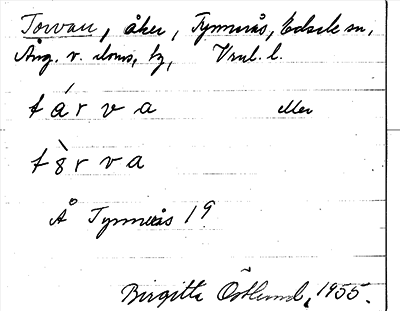 Torvau, åker, Tynnerås, Edsele sn,
Ång. v. doms, by, l.
t á r v a eller
t ò r v a
Å Tynnerås 19
Birgitta Östlund, 1955.